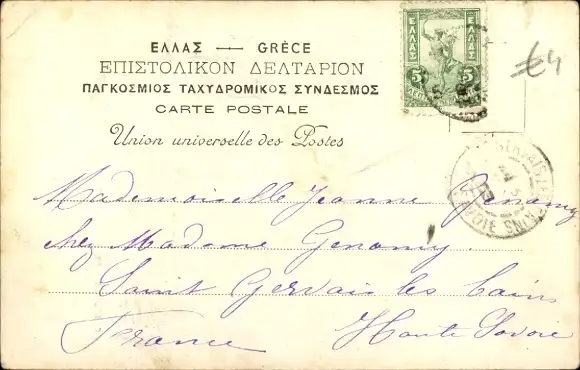 ΕΛΛΑΣ — GRÈCE
ΕΠΙΣΤΟΛΙΚΟΝ ΔΕΛΤΑΡΙΟΝ
ΠΑΓΚΟΣΜΙΟΣ ΤΑΧΥΔΡΟΜΙΚΟΣ ΣΥΝΔΕΣΜΟΣ
CARTE POSTALE
Union universelle des Postes
ΕΛΛΑΣ
5 5
€4
Mademoiselle Jeanne
chez Madame
Saint Gervais les Bains
France Haute Savoie